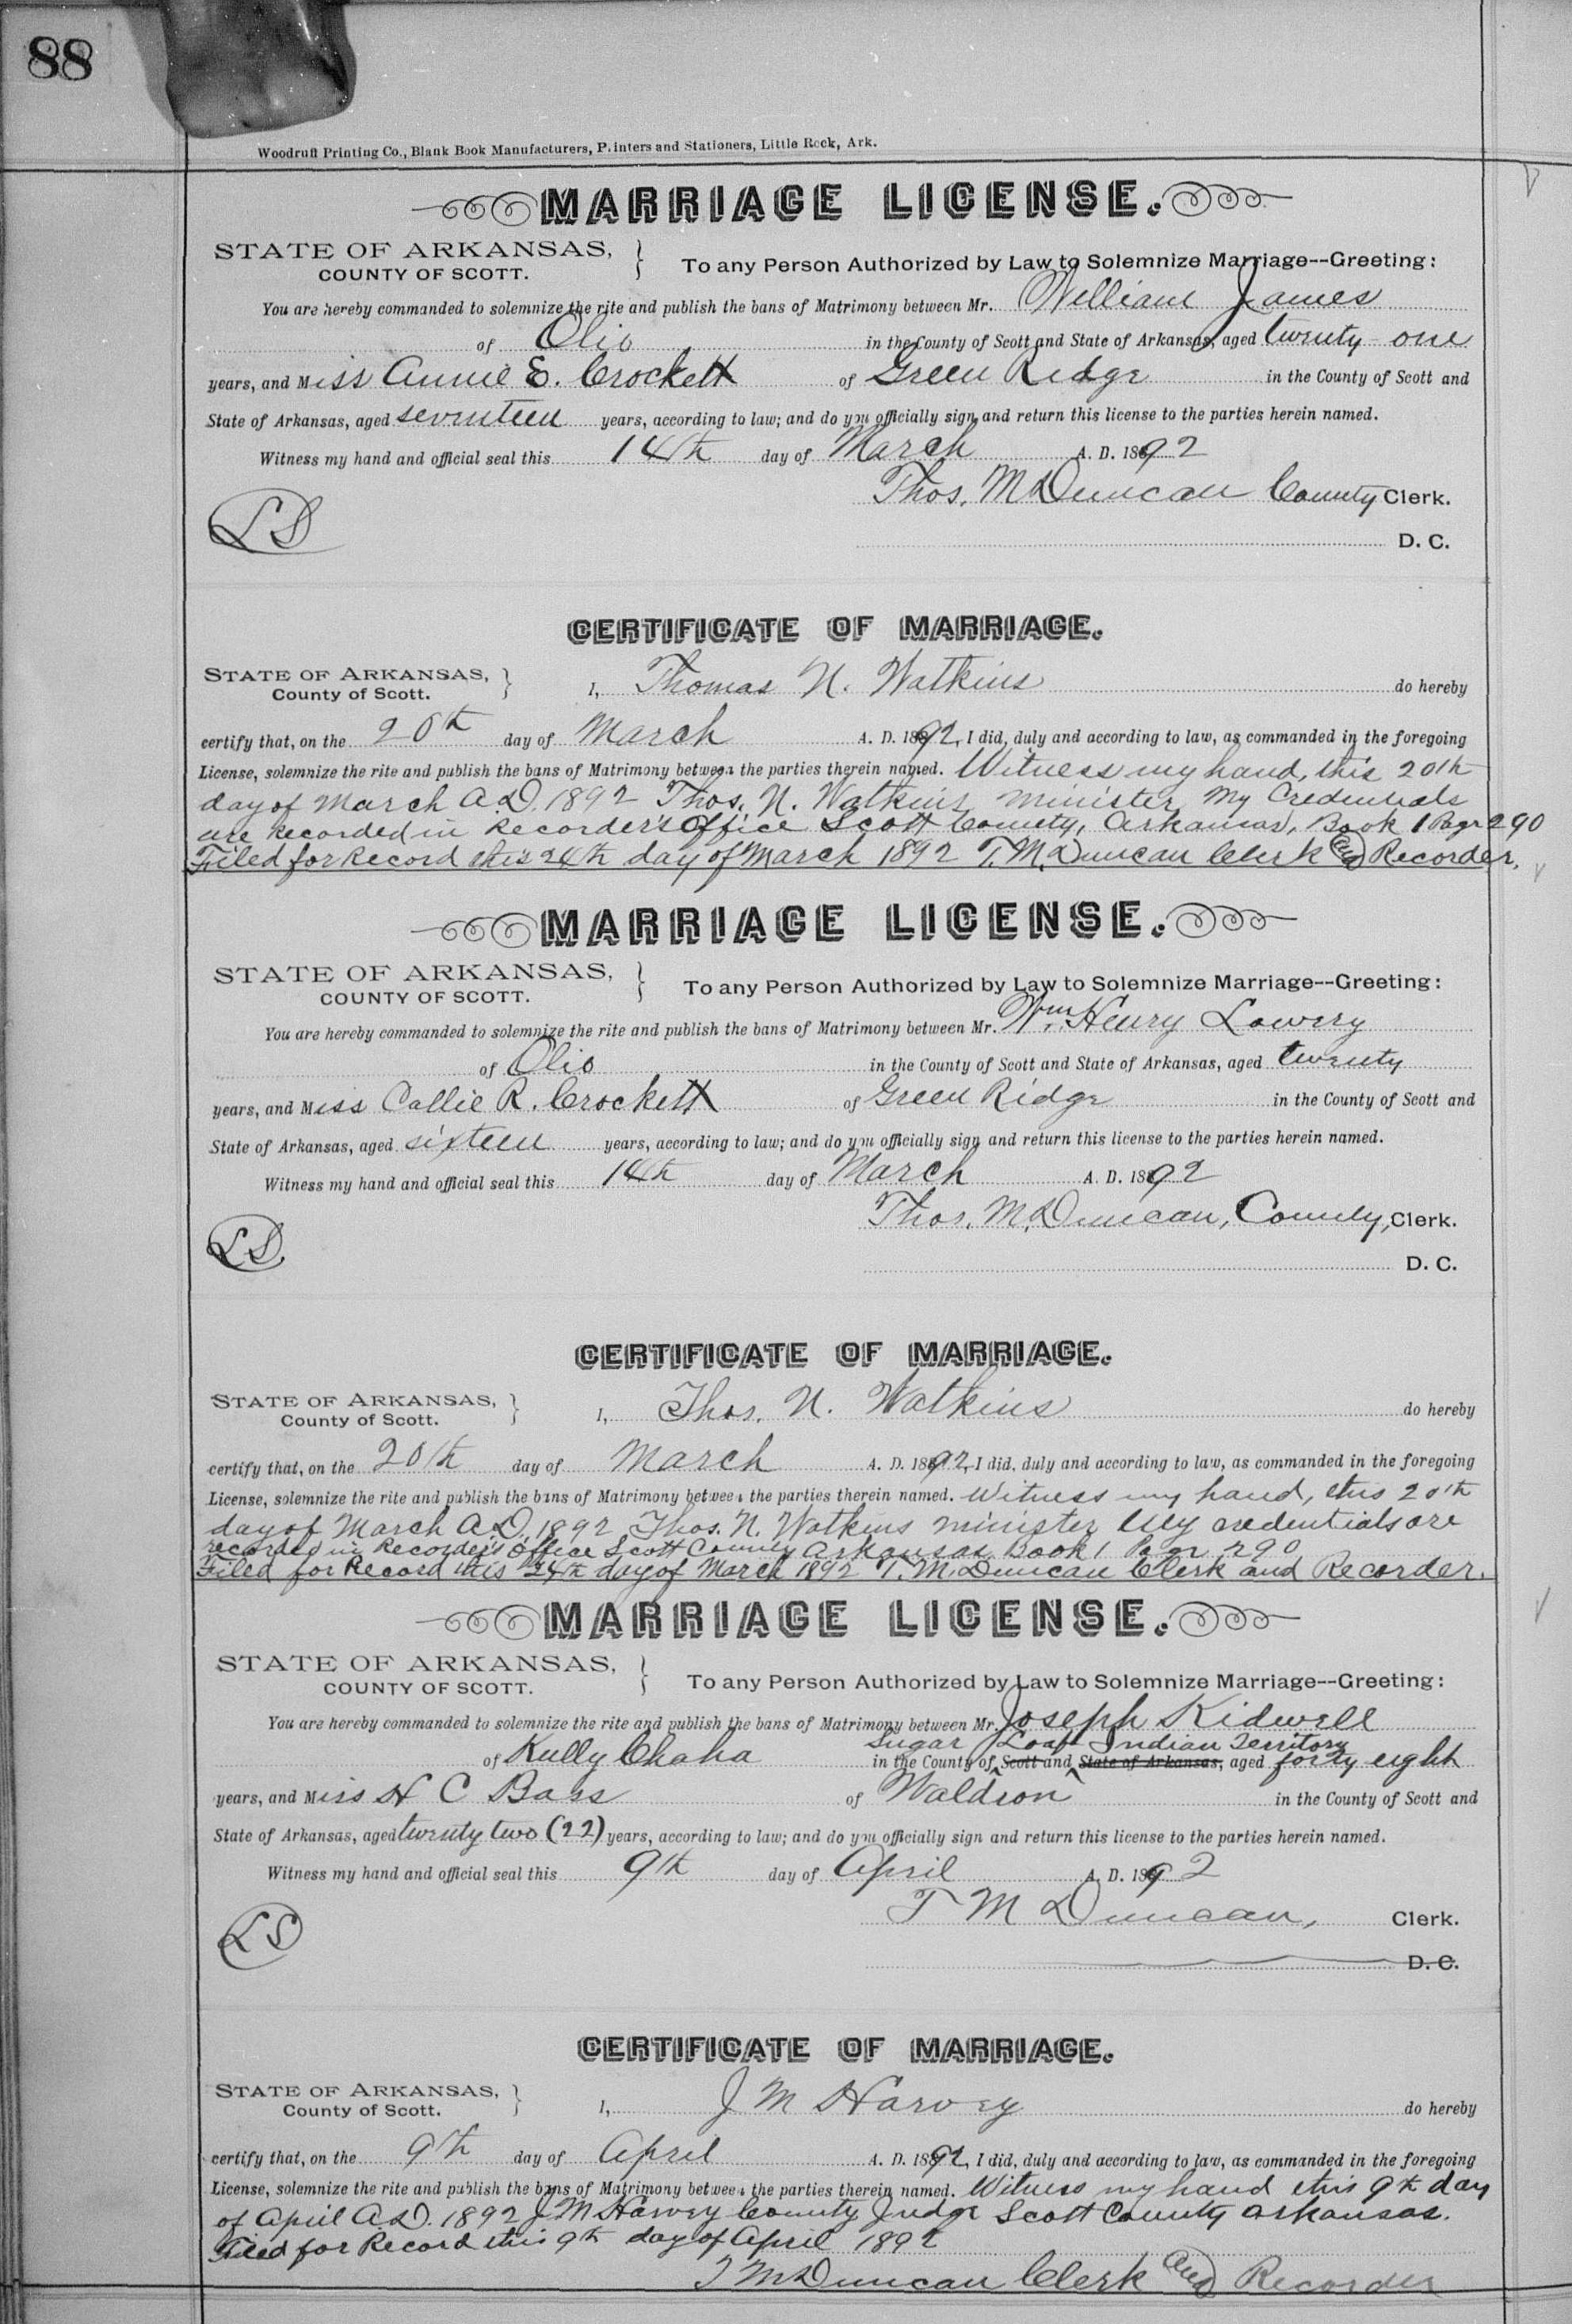 88
Woodruff Printing Co., Blank Book Manufacturers, Printers and Stationers, Little Rock, Ark.
MARRIAGE LICENSE.
STATE OF ARKANSAS, } To any Person Authorized by Law to Solemnize Marriage--Greeting:
COUNTY OF SCOTT.
You are hereby commanded to solemnize the rite and publish the bans of Matrimony between Mr. William James
of Olio in the County of Scott and State of Arkansas, aged twenty one
years, and Miss Annie E. Crockett of Green Ridge in the County of Scott and
State of Arkansas, aged seventeen years, according to law; and do you officially sign and return this license to the parties herein named.
Witness my hand and official seal this 14th day of March A. D. 1892
Thos. M. Duncan County Clerk.
LS
D. C.
CERTIFICATE OF MARRIAGE.
STATE OF ARKANSAS, } I, Thomas N. Watkins do hereby
County of Scott.
certify that, on the 20th day of March A. D. 1892, I did, duly and according to law, as commanded in the foregoing
License, solemnize the rite and publish the bans of Matrimony between the parties therein named. Witness my hand, this 20th
day of March A.D. 1892 Thos. N. Watkins minister My Credentials
are Recorded in Recorder's Office Scott County, Arkansas, Book 1 Page 290
Filed for Record this 24th day of March 1892 T. M. Duncan Clerk and Recorder.
MARRIAGE LICENSE.
STATE OF ARKANSAS, } To any Person Authorized by Law to Solemnize Marriage--Greeting:
COUNTY OF SCOTT.
You are hereby commanded to solemnize the rite and publish the bans of Matrimony between Mr. Wm. Henry Lowery
of Olio in the County of Scott and State of Arkansas, aged twenty
years, and Miss Callie R. Crockett of Green Ridge in the County of Scott and
State of Arkansas, aged sixteen years, according to law; and do you officially sign and return this license to the parties herein named.
Witness my hand and official seal this 14th day of March A. D. 1892
Thos. M. Duncan, County, Clerk.
LS
D. C.
CERTIFICATE OF MARRIAGE.
STATE OF ARKANSAS, } I, Thos. N. Watkins do hereby
County of Scott.
certify that, on the 20th day of March A. D. 1892, I did, duly and according to law, as commanded in the foregoing
License, solemnize the rite and publish the bans of Matrimony between the parties therein named. Witness my hand, this 20th
day of March A.D. 1892 Thos. N. Watkins minister My credentials are
recorded in Recorder's Office Scott County Arkansas Book 1 Page 290
Filed for Record this 24th day of March 1892 T. M. Duncan Clerk and Recorder.
MARRIAGE LICENSE.
STATE OF ARKANSAS, } To any Person Authorized by Law to Solemnize Marriage--Greeting:
COUNTY OF SCOTT.
You are hereby commanded to solemnize the rite and publish the bans of Matrimony between Mr. Joseph Kidwell
Sugar Loaf Indian Territory
of Kully Chaha in the County of Scott and State of Arkansas, aged forty eight
years, and Miss H C Bass of Waldron in the County of Scott and
State of Arkansas, aged twenty two (22) years, according to law; and do you officially sign and return this license to the parties herein named.
Witness my hand and official seal this 9th day of April A. D. 1892
T M Duncan, Clerk.
LS
D. C.
CERTIFICATE OF MARRIAGE.
STATE OF ARKANSAS, } I, J M Harvey do hereby
County of Scott.
certify that, on the 9th day of April A. D. 1892, I did, duly and according to law, as commanded in the foregoing
License, solemnize the rite and publish the bans of Matrimony between the parties therein named. Witness my hand this 9th day
of April A.D. 1892 J M Harvey County Judge Scott County Arkansas.
Filed for Record this 9th day of April 1892
T M Duncan Clerk and Recorder